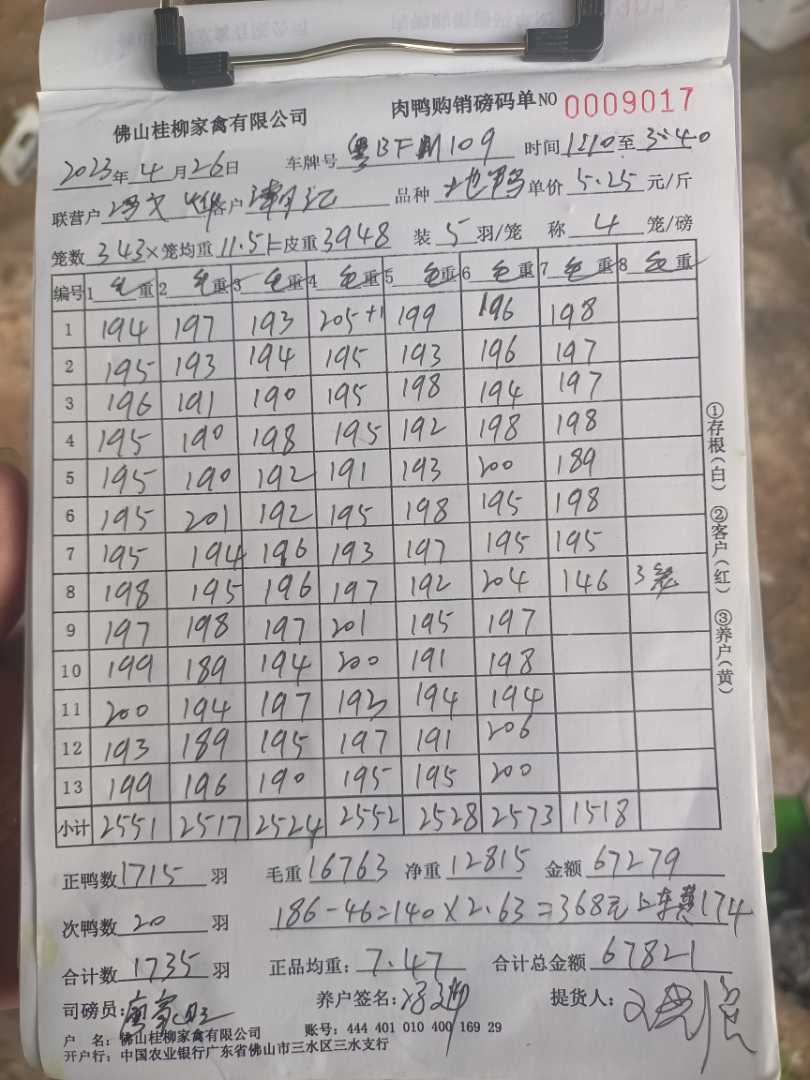 佛山桂柳家禽有限公司 肉鸭购销磅码单 NO 0009017
2023年4月26日 车牌号 粤BFM109 时间1210至3:40
联营户 客户 品种 单价 5.25 元/斤
笼数 343×笼均重 11.51=皮重3948 装 5 羽/笼 称 4 笼/磅
编号 1 毛重 2 毛重 3 毛重 4 毛重 5 毛重 6 毛重 7 毛重 8 毛重
1 194 197 193 205+1 199 196 198
2 195 193 194 195 193 196 197
3 196 191 190 195 198 194 197
4 195 190 198 195 192 198 198
5 195 190 192 191 193 200 189
6 195 201 192 195 198 195 198
7 195 194 196 193 197 195 195
8 198 195 196 197 192 204 146 3笼
9 197 198 197 201 195 197
10 199 189 194 200 191 198
11 200 194 197 193 194 194
12 193 189 195 197 191 206
13 199 196 190 195 195 200
小计 2551 2517 2524 2552 2528 2573 1518
正鸭数1715羽 毛重16763 净重12815 金额67279
次鸭数 20 羽 186-46=140×2.63=368元 上车费174
合计数 1735 羽 正品均重: 7.47 合计总金额 67821
司磅员: 养户签名: 提货人:
户 名: 佛山桂柳家禽有限公司 账号: 444 401 010 400 169 29
开户行: 中国农业银行广东省佛山市三水区三水支行
①存根(白) ②客户(红) ③养户(黄)